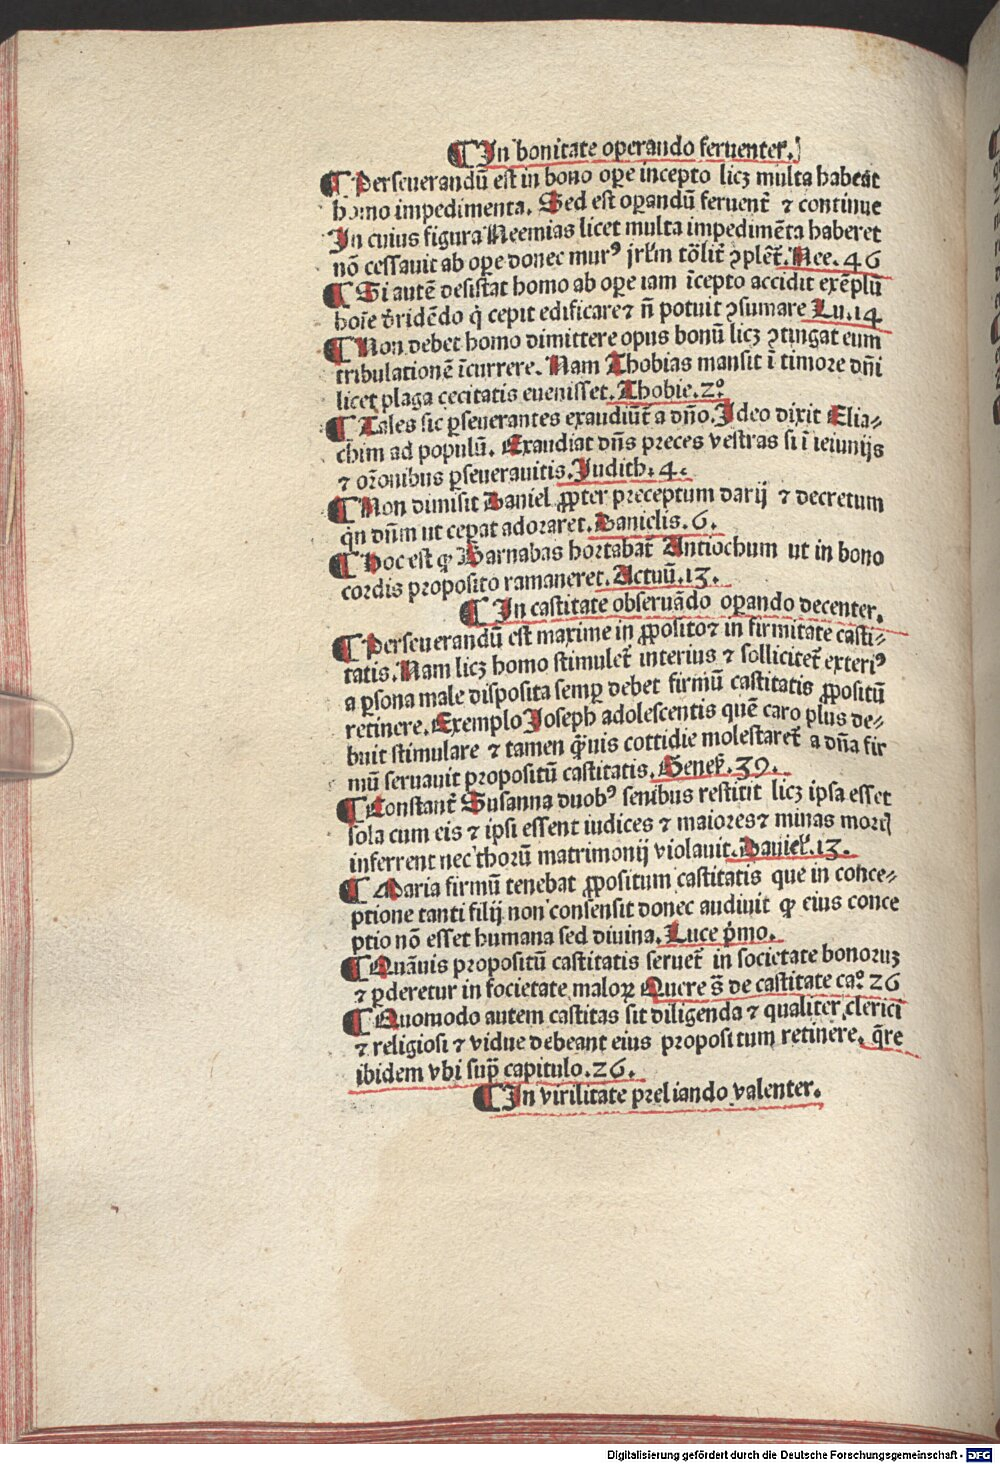 ¶ In bonitate operando feruenter.
¶ Perseuerandū est in bono ope incepto licꝫ multa habeat
homo impedimenta. Sed est oꝑandū feruent̄ ⁊ continue
In cuius figura Neemias licet multa impedimēta haberet
nō cessauit ab oꝑe donec murꝰ jrl̄m tōlit̄ ꝯplēt̄. Nee. 46
¶ Si autē desistat homo ab oꝑe iam īcepto accidit exēplū
hoīe d̄ridēdo q̇ cepit edificare ⁊ n̄ potuit ꝯsumare Lu. 14
¶ Non debet homo dimittere opus bonū licꝫ ꝯtingat eum
tribulationē īcurrere. Nam Thobias mansit ī timore dn̄i
licet plaga cecitatis euenisset. Thobie. 2º
¶ Tales sic ꝑseuerantes exaudiūt̄ a dn̄o. Ideo dixit Elia⸗
chim ad populū. Exaudiat dn̄s preces vestras si ī ieiunijs
⁊ or̄onibus ꝑseuerauitis. Judith. 4.
¶ Non dimisit Daniel ꝓpter preceptum darij ⁊ decretum
q̄n dn̄m ut ceꝑat adoraret. Danielis. 6.
¶ Hoc est ꝙ Barnabas hortabat̄ Antiochum ut in bono
cordis proposito ramaneret. Actuū. 13.
¶ In castitate obseruādo oꝑando decenter.
¶ Perseuerandū est maxime in ꝓposito ⁊ in firmitate casti⸗
tatis. Nam licꝫ homo stimulet̄ interius ⁊ sollicitet̄ exteriꝰ
a ꝑsona male disposita semꝑ debet firmū castitatis ꝓpositū
retinere. Exemplo Joseph adolescentis quē caro plus de⸗
buit stimulare ⁊ tamen q̄uis cottidie molestaret̄ a dn̄a fir
mū seruauit propositū castitatis. Genes̄. 39.
¶ Constant̄ Susanna duobꝰ senibus restitit licꝫ ipsa esset
sola cum eis ⁊ ipsi essent iudices ⁊ maiores ⁊ minas mortꝭ
inferrent nec thorū matrimonij violauit. Daniel̄. 13.
¶ Maria firmū tenebat ꝓpositum castitatis que in conce⸗
ptione tanti filij non consensit donec audiuit ꝙ eius conce
ptio nō esset humana sed diuina. Luce p̄mo.
¶ Quāuis propositū castitatis seruet̄ in societate bonoruꝫ
⁊ ꝑderetur in societate maloꝝ Quere s̄ de castitate ca. 26
¶ Quomodo autem castitas sit diligenda ⁊ qualiter clerici
⁊ religiosi ⁊ vidue debeant eius propositum retinere. q̄re
ibidem vbi sup̄ capitulo. 26.
¶ In virilitate preliando valenter.
Digitalisierung gefördert durch die Deutsche Forschungsgemeinschaft - DFG